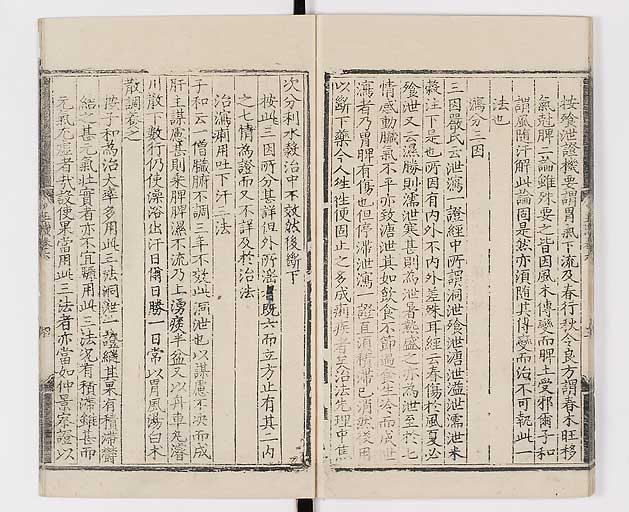 按飱泄證機要謂胃氣下流及春行秋令良方謂春木旺移
氣尅脾二論雖殊要之皆因風木傳變而脾土受邪爾子和
謂風隨汗解此論固是然亦須隨其傳變而治不可執此一
法也
瀉分三因
三因嚴氏云泄瀉一證經中所謂洞泄飱泄溏泄溢泄濡泄水
穀注下是也所因有内外不内外差殊耳經云春傷於風夏必
飱泄又云濕勝則濡泄寒甚則為泄暑熱盛之亦為泄至於七
情感動臟氣不平亦致溏泄其如飲食不節過食生冷而成泄
瀉者乃胃脾有傷也但停滯泄瀉一證直須積滯已消然後用
以斷下藥今人徃徃便固止之多成痢疾者矣治法先理中焦
次分利水穀治中不效然後斷下
按此三因所分甚詳但外所滛既六而立方止有其二内
之七情為證而又不詳及於治法
治瀉痢用吐下汗三法
子和云一僧臓腑不調三年不效此洞泄也以謀慮不决而成
肝主謀慮甚則乘脾脾濕不流乃上湧痰半盆又以舟車丸濬
川散下數行仍使澡浴出汗日爾日勝一日常以胃風湯白朮
散調養之
按子和為治大率多用此三法洞泄證縂其果有積滯鬱
結之甚元氣壯實者亦不宜驟用此三法况有積滯雖甚而
元氣尤虚者哉設使果當用此三法者亦當如仲景察證以